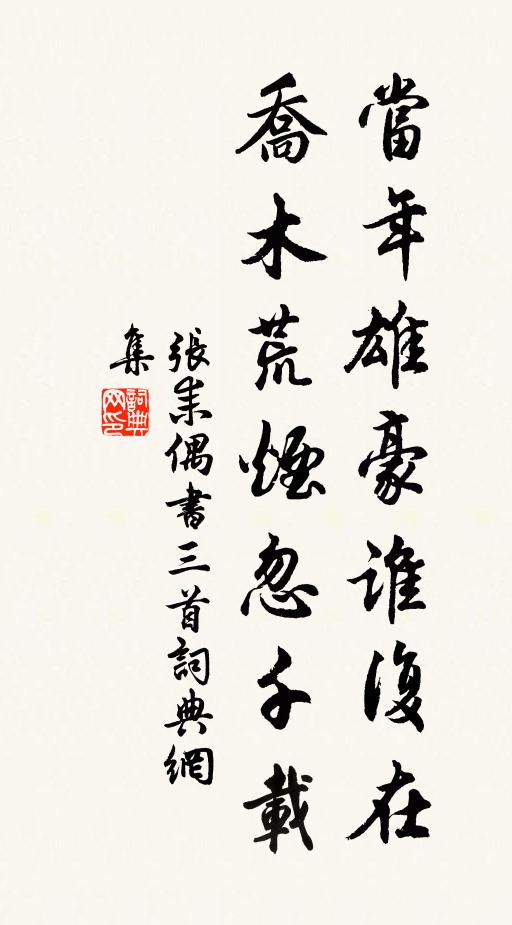 當年雄豪誰復在
喬木荒煙忽千載
張耒偶書三首詞典網
集
詞典網印